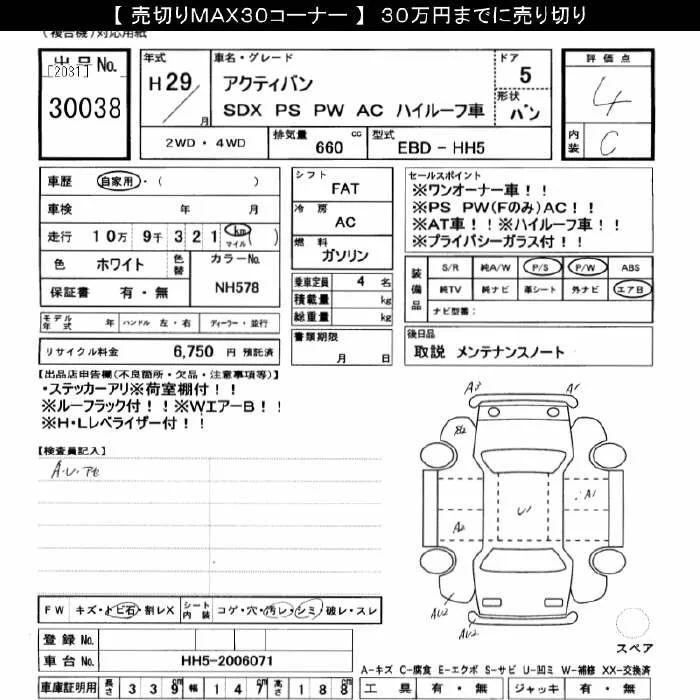 【 売切りMAX30コーナー 】 30万円までに売り切り
(複合機)対応用紙
出品No.
[2031]
30038
年式
H29/
月
車名・グレード
アクティバン
SDX PS PW AC ハイルーフ車
ドア
5
形状
バン
評価点
4
内装
C
2WD・4WD
排気量
660 cc
型式
EBD-HH5
車歴 自家用・( )
車検 年 月
走行 10万 9千 3 2 1 km マイル ( )
色 ホワイト 色替 カラーNo.
保証書 有・無 NH578
シフト
FAT
冷房
AC
燃料
ガソリン
乗車定員 4 名
積載量 kg
総重量 kg
セールスポイント
※ワンオーナー車!!
※PS PW(Fのみ)AC!!
※AT車!!※ハイルーフ車!!
※プライバシーガラス付!!
装備品
S/R 純A/W P/S P/W ABS
純TV 純ナビ 革シート 外ナビ エアB
ナビ型番:
モデル年式 年 ハンドル 左・右 ディーラー・並行
リサイクル料金 6,750 円 預託済
書類期限
月 日
後日品
取説 メンテナンスノート
【出品店申告欄(不良箇所・欠品・注意事項等)】
・ステッカーアリ※荷室棚付!!
※ルーフラック付!!※WエアーB!!
※H・Lレベライザー付!!
【検査員記入】
A.U.
A3
A1
A1
A2
U1
AU2
AU2
スペア
FW キズ・トビ石・割レX シート内装 コゲ・穴・汚レ・シミ・破レ・スレ
登録No.
車台No. HH5-2006071
車庫証明用 長さ 3 3 9 cm 幅 1 4 7 cm 高さ 1 8 8 cm
A-キズ C-腐食 E-エクボ S-サビ U-凹ミ W-補修 XX-交換済
工具 有・無 ジャッキ 有・無